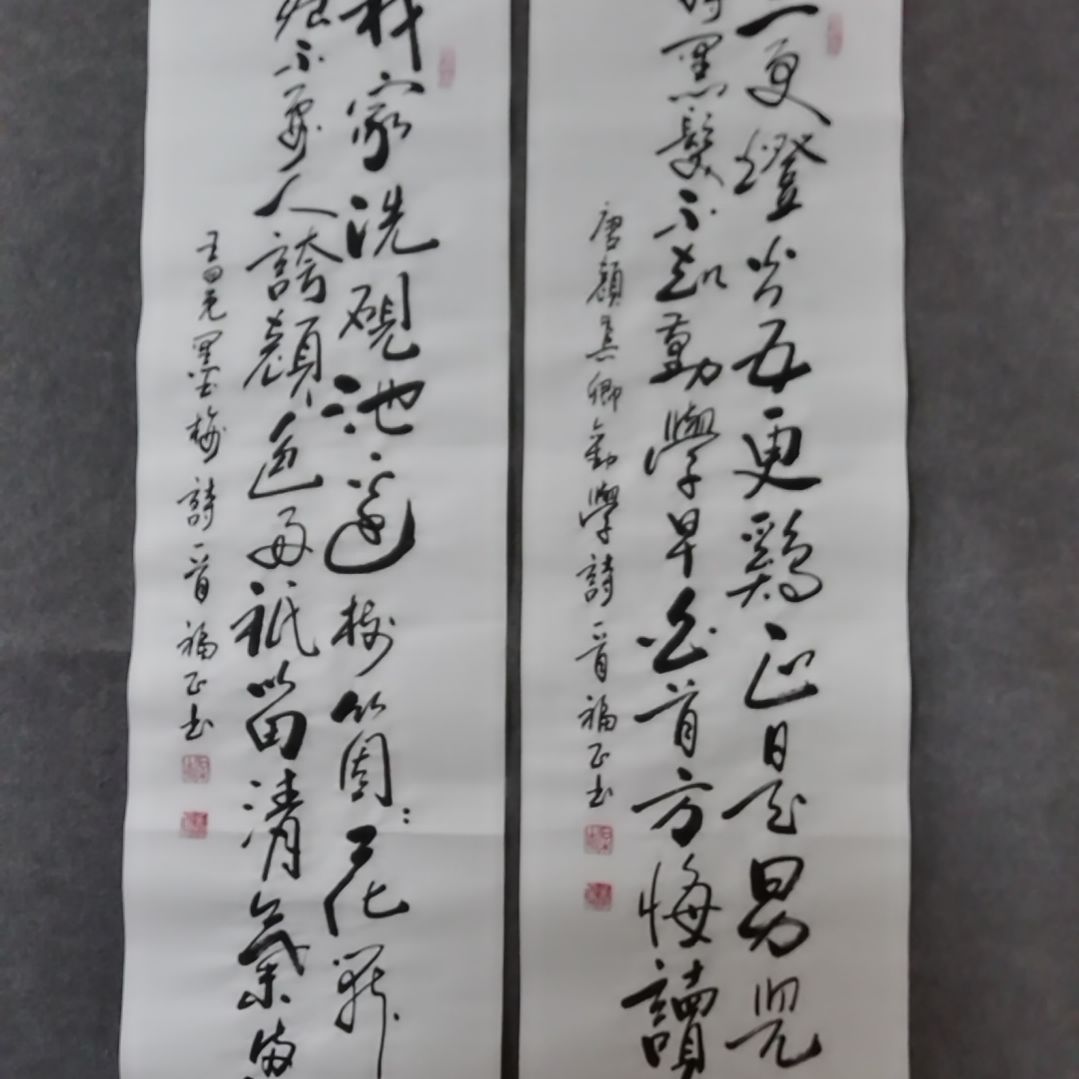 三更燈火五更鷄正是男兒
時黑髮不知勤學早白首方悔讀
唐顔真卿勸學詩一首福正书
我家洗硯池邊樹箇々花開
痕不要人誇顔色好祇留清氣滿
王冕墨梅詩一首福正书